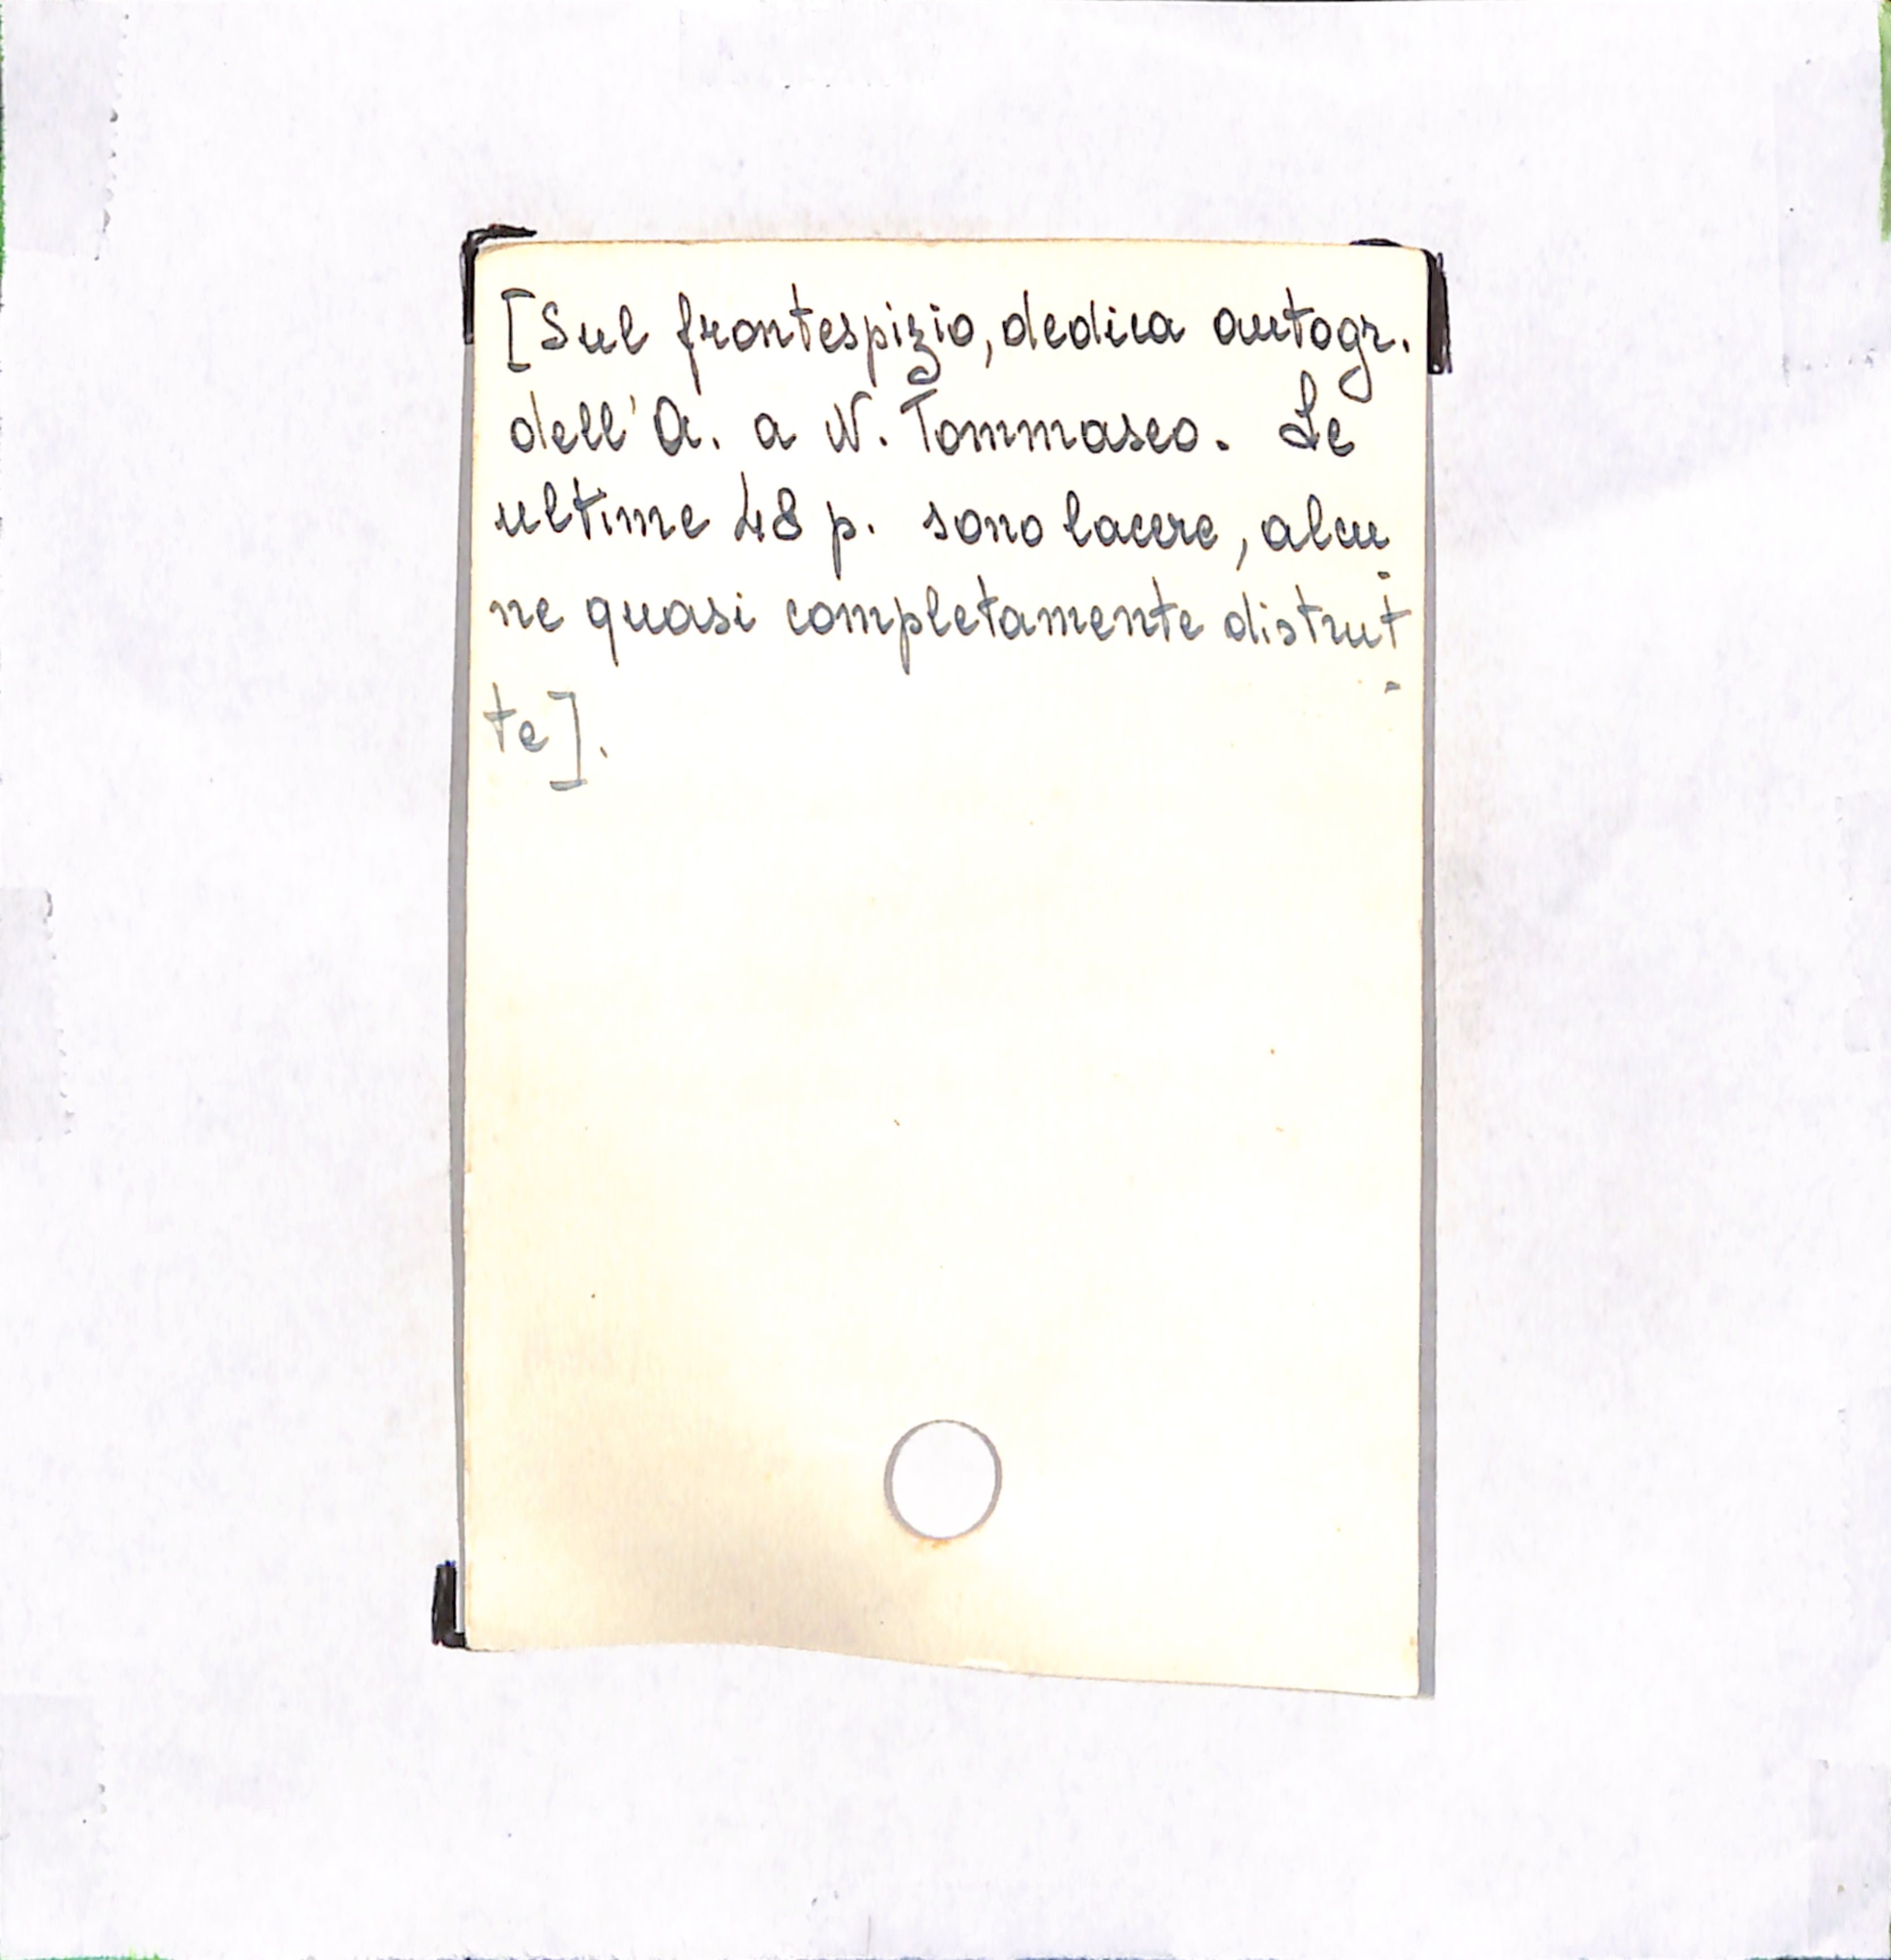 [Sul frontespizio, dedica autogr.
dell'A. a N. Tommaseo. Le
ultime 48 p. sono lacere, alcu-
ne quasi completamente distrut-
te].